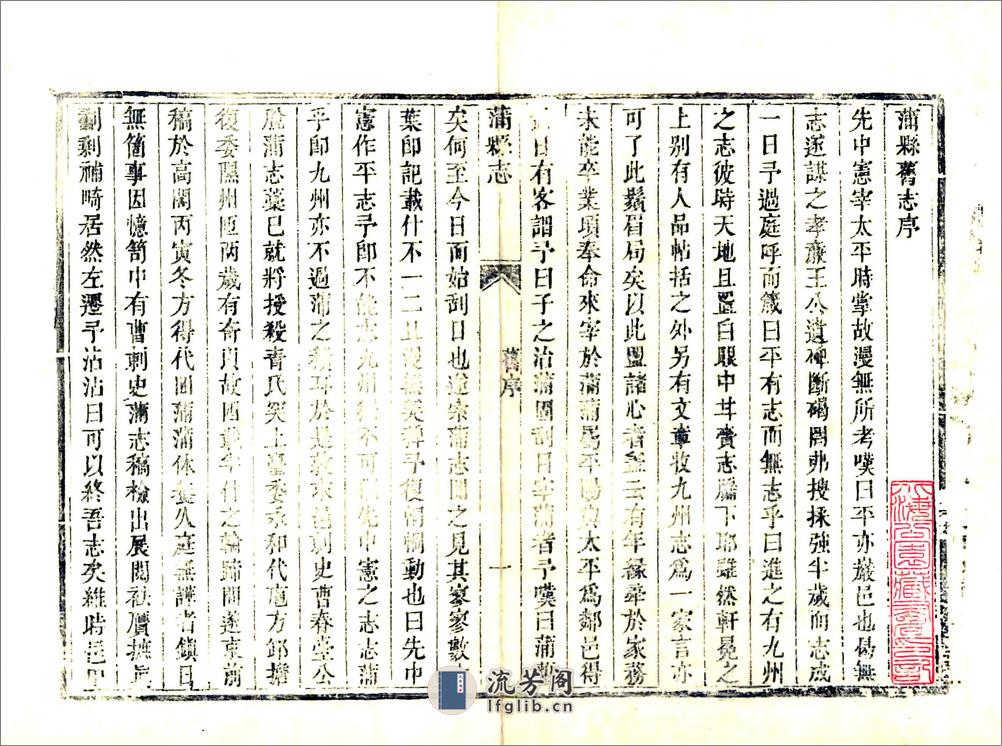 蒲縣舊志序
先中憲宰太平時掌故漫無所考嘆曰平亦巖邑也曷無
志遂謀之孝嚴王公遺碑斷碣罔弗搜採強半歲而志成
一日予過庭呼而箴曰平有志而無志乎曰進之有九州
之志彼時天地且置白眼中其賫志牖下耶雖然軒冕之
上別有人品帖括之外另有文章收九州志爲一家言亦
可了此鬚眉局矣以此盟諸心者蓋云有年緣牽於家務
未能卒業頃奉命來宰於蒲蒲爲平陽與太平爲鄰邑得
日有客謂予曰子之治蒲聞刮日宰蒲者予嘆曰蒲
蒲縣志
舊序
一
矣何至今日而始刮日也遂索蒲志閱之見其寥寥數
葉即記載什不一二比 予復惻惻動也曰先中
憲作平志予即不能志九州 不可 先中憲之志志蒲
乎即九州亦不過蒲之積耳於是敦求邑刺史曹春臺公
脍蒲志藁已就將授殺青氏突上臺委永和代庖方卸擔
復委隰州匝兩歲有奇 故四載半 之輪蹄間遂束前
稿於高閣丙寅冬方得代回蒲蒲休養久庭無譁者鎮日
無簡事因憶笥中有曹刺史蒲志稿檢出展閱祛贋摭
劖剩補畸居然左遷予沾沾曰可以終吾志矣維時邑
流芳阁
lfglib.cn